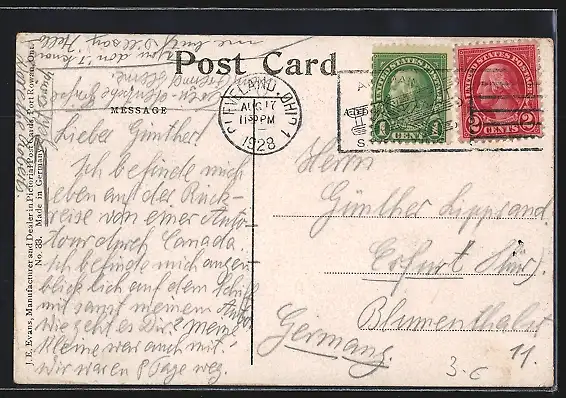 Post Card
MESSAGE
Lieber Günther!
Ich befinde mich
eben auf der Rück-
reise von einer Auto-
tour durch Canada.
Ich befinde mich augen-
blicklich auf dem Schiff
mit samt meinem Auto.
Wie geht es Dir? Meine
Kleine war auch mit.
Wir waren 8 Tage weg.
J. E. Evans, Manufacturer and Dealer in Pictorial Post Cards, Port Rowan, Ont.
No. 33. Made in Germany
CLEVELAND, OHIO 1
AUG 17
1928
UNITED STATES POSTAGE
1 CENT 1
UNITED STATES POSTAGE
2 CENTS 2
Herrn
Günther Lippsand
Erfurt (Thür).
Blumenthalstr
11.
Germany.
3.-